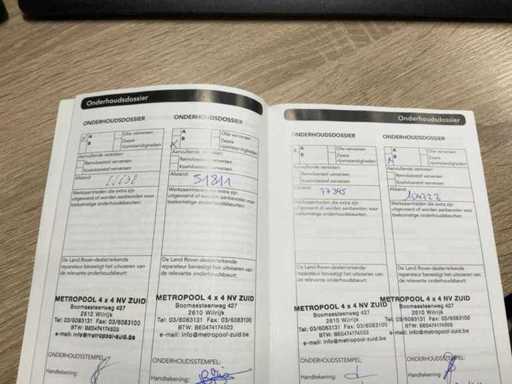 Onderhoudsdossier
ONDERHOUDSDOSSIER
A
B
Olie verversen
Zware
omstandigheden
Aanvullende vereisten:
Remvloeistof verversen
Koelvloeistof verversen
Afstand
Werkzaamheden die extra zijn
uitgevoerd of worden aanbevolen voor
toekomstige onderhoudsbeurten:
De Land Rover-dealer/erkende
reparateur bevestigt het uitvoeren van
de relevante onderhoudsbeurt:
METROPOOL 4 x 4 NV ZUID
Boomsesteenweg 427
2610 Wilrijk
Tel: 03/6083131 Fax: 03/6083100
BTW: BE0474174503
e-mail: info@metropool-zuid.be
ONDERHOUDSSTEMPEL:
Handtekening:
ONDERHOUDSDOSSIER
A
B
Olie verversen
Zware
omstandigheden
Aanvullende vereisten:
Remvloeistof verversen
Koelvloeistof verversen
Afstand
51811
Werkzaamheden die extra zijn
uitgevoerd of worden aanbevolen voor
toekomstige onderhoudsbeurten:
De Land Rover-dealer/erkende
reparateur bevestigt het uitvoeren van
de relevante onderhoudsbeurt:
METROPOOL 4 x 4 NV ZUID
Boomsesteenweg 427
2610 Wilrijk
Tel: 03/6083131 Fax: 03/6083100
BTW: BE0474174503
e-mail: info@metropool-zuid.be
ONDERHOUDSSTEMPEL:
Handtekening:
Onderhoudsdossier
ONDERHOUDSDOSSIER
A
B
Olie verversen
Zware
omstandigheden
Aanvullende vereisten:
Remvloeistof verversen
Koelvloeistof verversen
Afstand
77345
Werkzaamheden die extra zijn
uitgevoerd of worden aanbevolen voor
toekomstige onderhoudsbeurten:
De Land Rover-dealer/erkende
reparateur bevestigt het uitvoeren van
de relevante onderhoudsbeurt:
METROPOOL 4 x 4 NV ZUID
Boomsesteenweg 427
2610 Wilrijk
Tel: 03/6083131 Fax: 03/6083100
BTW: BE0474174503
e-mail: info@metropool-zuid.be
ONDERHOUDSSTEMPEL:
Handtekening:
ONDERHOUDSDOSSIER
A
B
Olie verversen
Zware
omstandigheden
Aanvullende vereisten:
Remvloeistof verversen
Koelvloeistof verversen
Afstand
Werkzaamheden die extra zijn
uitgevoerd of worden aanbevolen voor
toekomstige onderhoudsbeurten:
De Land Rover-dealer/erkende
reparateur bevestigt het uitvoeren van
de relevante onderhoudsbeurt:
METROPOOL 4 x 4 NV ZUID
Boomsesteenweg 427
2610 Wilrijk
Tel: 03/6083131 Fax: 03/6083100
BTW: BE0474174503
e-mail: info@metropool-zuid.be
ONDERHOUDSSTEMPEL:
Handtekening: